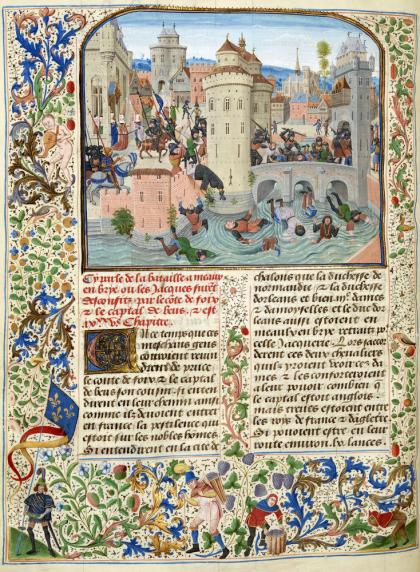 Cy parle de la bataille a meaux
en brye ou les Jacques furēt
desconfis par le côte de foix
& le captal de beus. & est
Mpres
meschans gens
couroient revin
drent de prusse
le conte de foix & le captal
de beus son cousin. si enten
dirent en leur chemin ainsi
comme ilz devoient entrer
en france. la pestilence qui
estoit sur les nobles hõmes
Si entendirent en la cite de
chalons que la duchesse de
normandie & la duchesse
dorleans et bien .iijc. dames
& damoyselles et le duc dor
leans aussi estoient en
meaulx en brye retrais po
celle Jacquerie. Lors sacor
derent ces deux chevaliers
quilz yroient veoir ces da
mes & les conforteroient
a leur povoir combien q̄
le captal estoit anglois.
mais treves estoient entre
les roys de france & dãglet̃re
Si povoient estre en leur
route environ .lx. lances